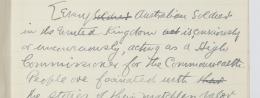 [Every soldier Australian Soldier
in the United Kingdom is consciously
or unconsciously, acting as a High
Commissioner for the Commonwealth
People are fascinated with their
the stories of their matchless valor